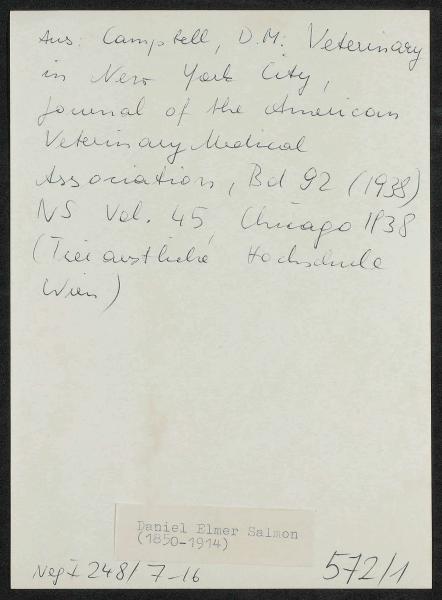 Aus: Campbell, D.M.: Veterinary
in New York City,
Journal of the American
Veterinary Medical
Association, Bd 92 (1938)
NS Vol. 45, Chicago 1938
(Tierärztliche Hochschule
Wien)
Daniel Elmer Salmon
(1850-1914)
Neg I 248/7-16
572/1